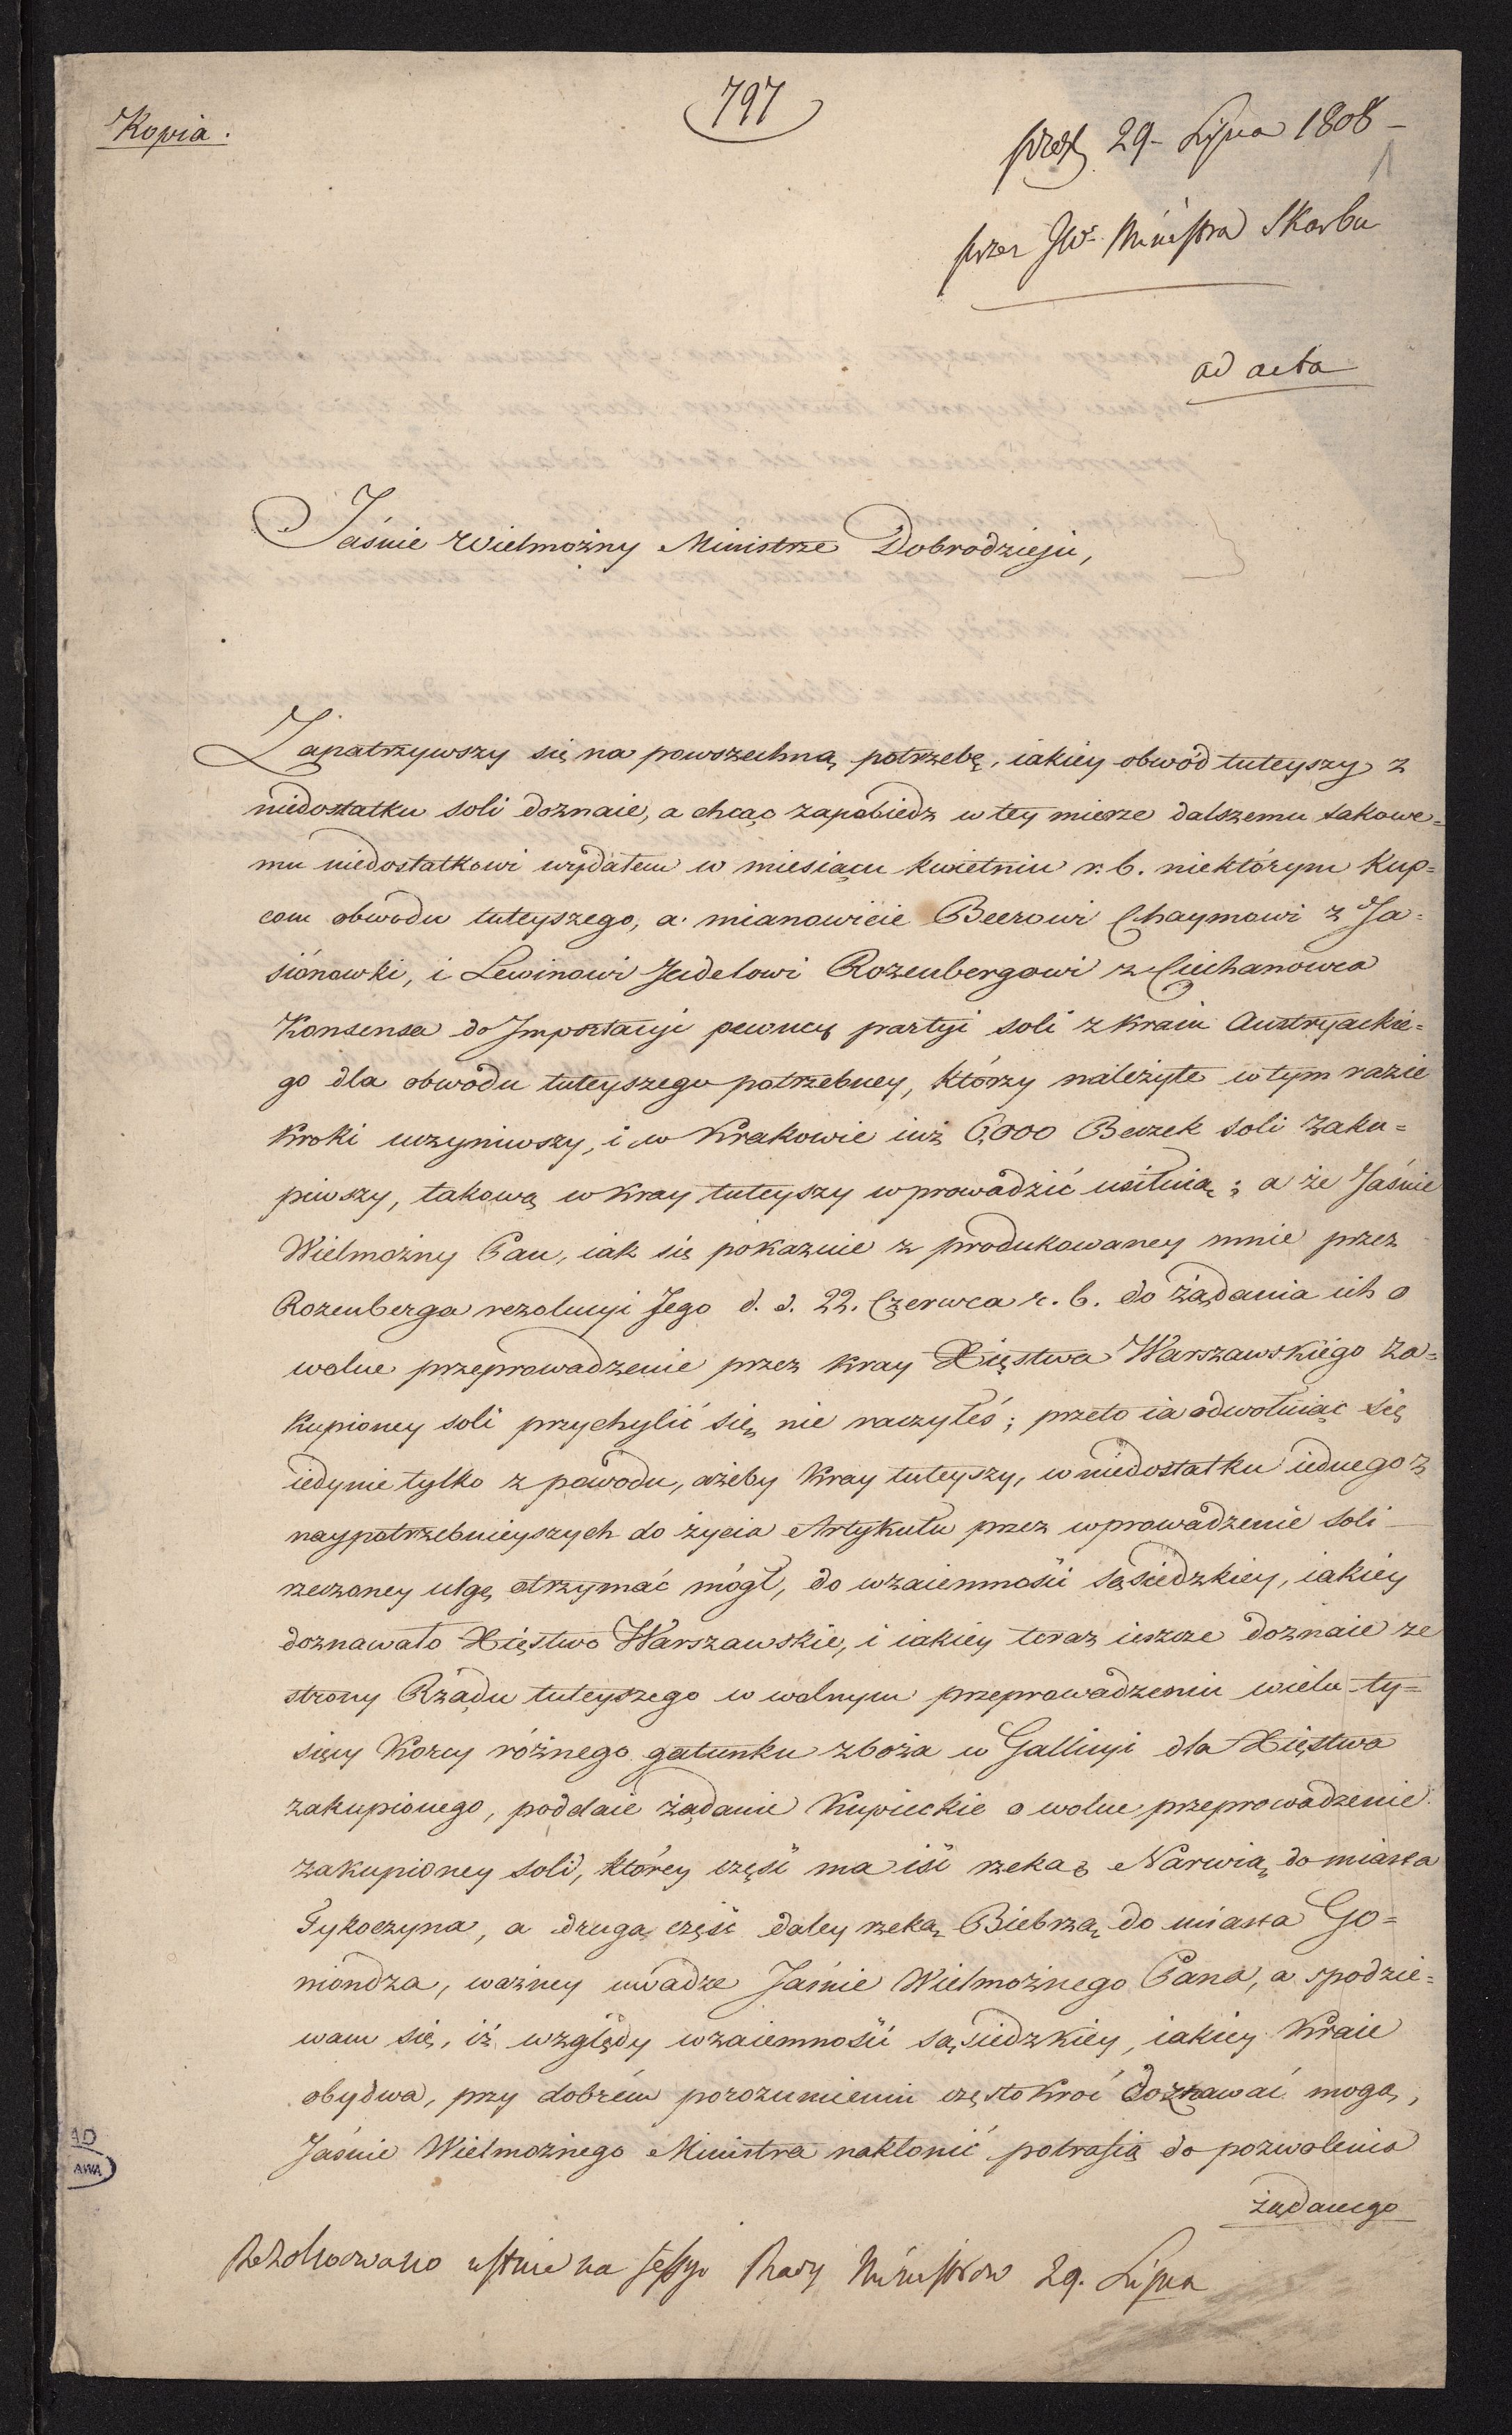 Kopia.
797
29 Lipca 1808 –
1
przez JW. Ministra Skarbu
ad acta
Jaśnie Wielmożny Ministrze Dobrodzieju,
Zapatrzywszy się na powszechną potrzebę, iakiey obwód tuteyszy z
niedostatku soli doznaie, a chcąc zapobiedz w tey mierze dalszemu takowe=
mu niedostatkowi wydałem w miesiącu kwietniu r. b. niektórym Kup=
com obwodu tuteyszego, a mianowicie Beerowi Chaymowi z Ja=
sionowki, i Lewinowi Judelowi Rozenbergowi z Ciechanowca
Konsensa do Importacyi pewney partyi soli z kraiu Austryackie=
go dla obwodu tuteyszego potrzebney, którzy należyte w tym razie
kroki uczyniwszy, i w Krakowie iuż 6,000 Beczek soli zaku=
piwszy, takową w kray tuteyszy wprowadzić usiłuią; a że Jaśnie
Wielmożny Pan, iak się pokazuie z produkowaney mnie przez
Rozenberga rezolucyi Jego d. d. 22. Czerwca r. b. do żądania ich o
wolne przeprowadzenie przez kray Xięstwa Warszawskiego za=
kupioney soli przychylić się nie raczyłeś; przeto ia odwołuiąc się
iedynie tylko z powodu, ażeby kray tuteyszy, w niedostatku iednego z
naypotrzebnieyszych do życia Artykułu przez wprowadzenie soli
rzeczoney ulgę otrzymać mógł, do wzaiemności sąsiedzkiey, iakiey
doznawało Xięstwo Warszawskie, i iakiey teraz ieszcze doznaie ze
strony Rządu tuteyszego w wolnym przeprowadzeniu wielu ty=
sięcy Korcy różnego gatunku zboża w Gallicyi dla Xięstwa
zakupionego, poddaie żądanie Kupieckie o wolne przeprowadzenie
zakupioney soli, którey część ma iść rzeką Narwią do miasta
Tykoczyna, a druga część daley rzeką Biebrzą do miasta Go=
niondza, ważney uwadze Jaśnie Wielmożnego Pana, a spodzie=
wam się, iż względy wzaiemności sąsiedzkiey, iakiey kraie
obydwa, przy dobrém porozumieniu częstokroć doznawać mogą,
Jaśnie Wielmożnego Ministra nakłonić potrafią do pozwolenia
żądanego
Rezolwowano ustnie na sessyi Rady Ministrow 29. Lipca
AD
AWA